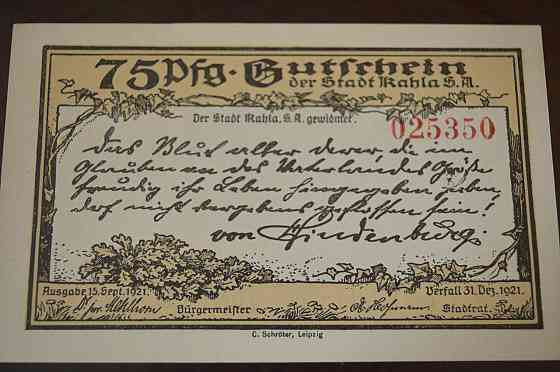 75 Pfg. Gutschein
der Stadt Kahla S.A.
Der Stadt Kahla, S.A. gewidmet.
025350
Das Blut aller derer, die im
Glauben an des Vaterlandes Größe
freudig ihr Leben hingegeben haben,
darf nicht vergebens geflossen sein!
von Hindenburg.
Ausgabe 15. Sept. 1921.
Verfall 31. Dez. 1921.
Bürgermeister
Stadtrat.
C. Schröter, Leipzig